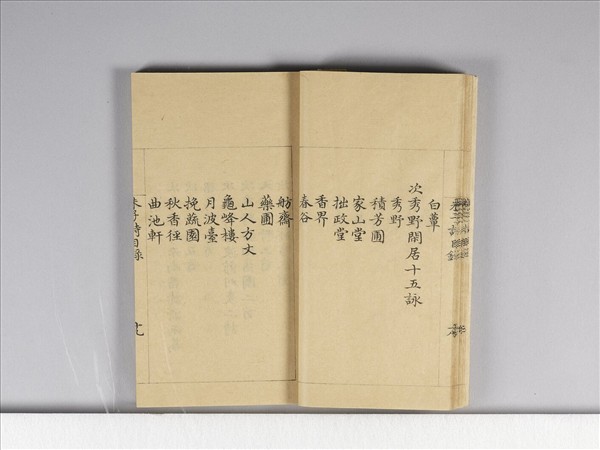 白蕈
次秀野閑居十五詠
秀野
積芳圃
家山堂
拙政堂
香界
春谷
舫齋
藥圃
山人方丈
龜峰樓
月波臺
挽蔬園
秋香徑
曲池軒
朱子詩目錄
十九